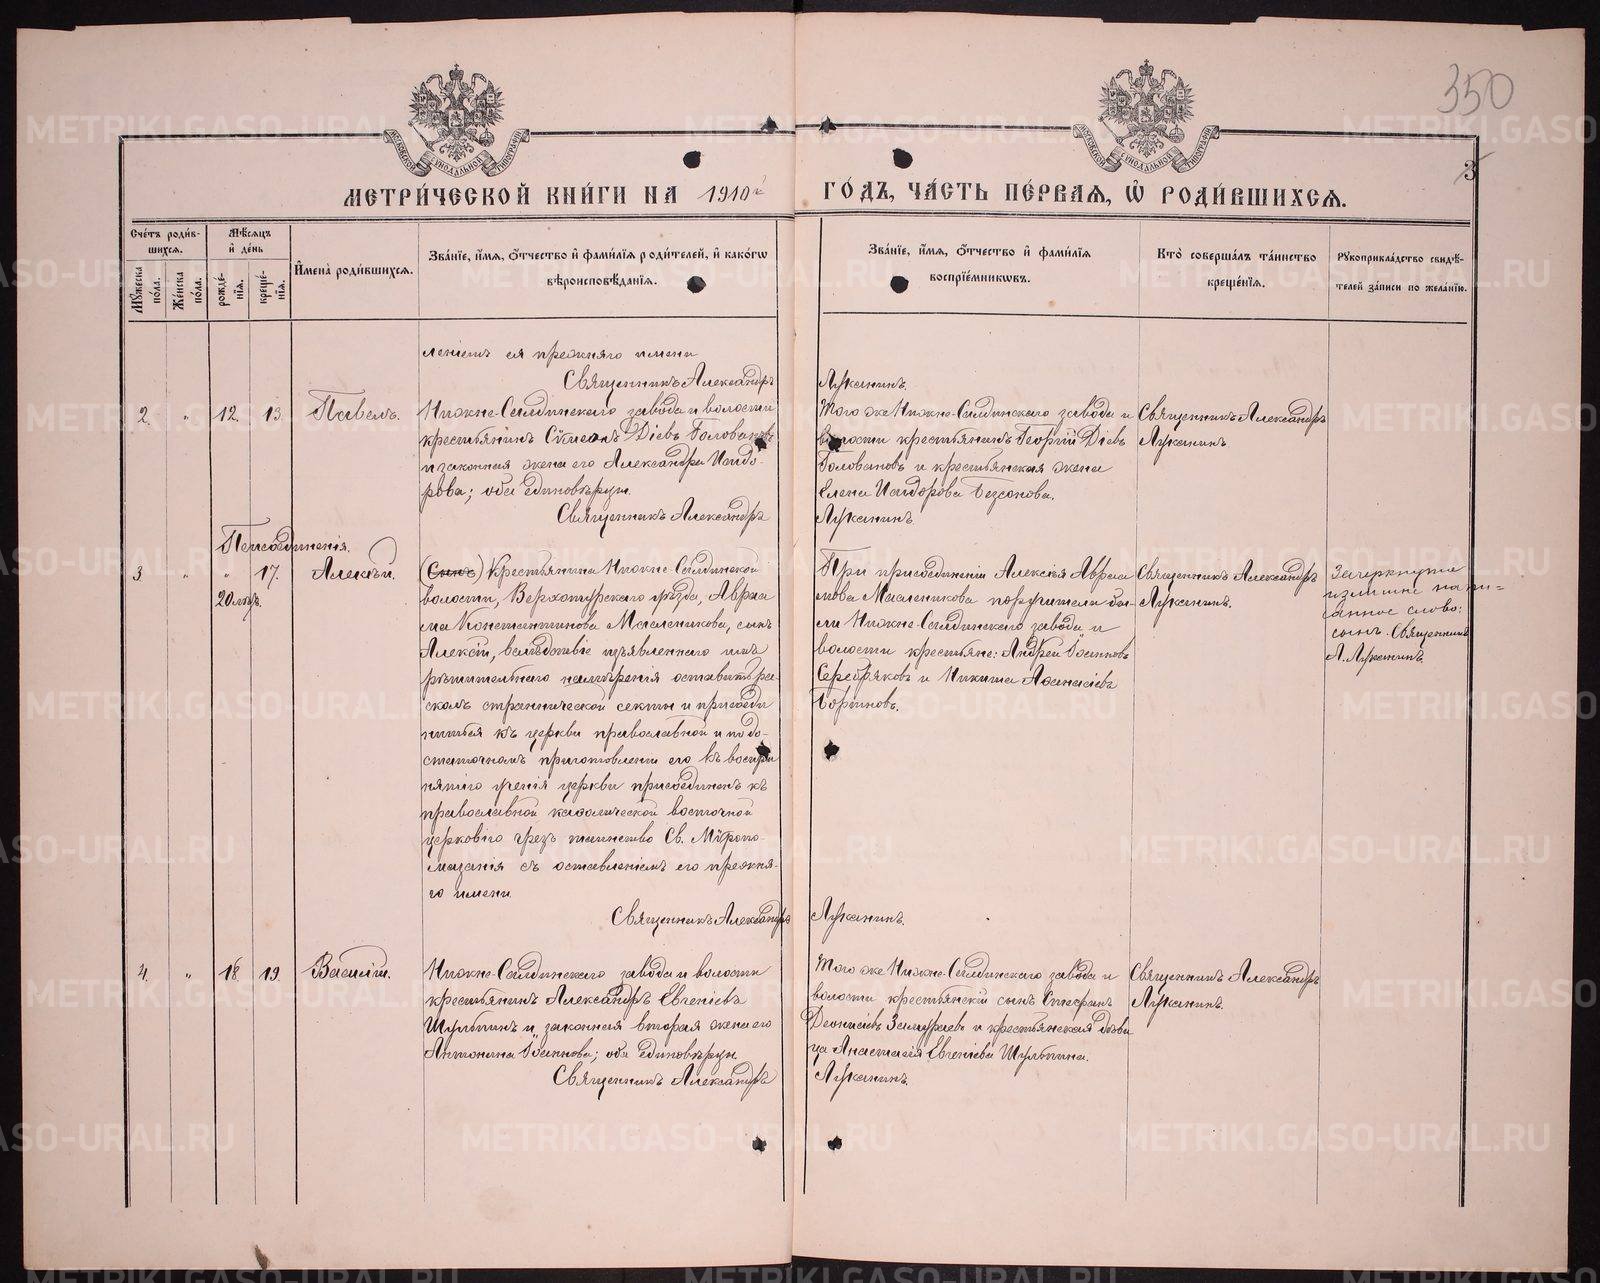 350
3
МЕТРИ́ЧЕСКОЙ КНИ́ГИ НА 1910й ГО́ДЪ, ЧА́СТЬ ПЕ́РВАЯ, Ѡ РОДИ́ВШИХСЯ.
Сче́тъ роди́вшихся.
Мѣ́сяцъ и де́нь
Имена̀ роди́вшихся.
Зва́ніе, и́мя, о́тчество и фами́лія роди́телей, и како́гѡ
вѣроисповѣ́данія.
Зва́ніе, и́мя, о́тчество и фами́лія
воспріе́мникѡвъ.
Кто̀ соверша́лъ та́инство
креще́нія.
Рꙋкоприкла́дство свидѣ́-
телей за́писи по жела́нію.
Мꙋ́жеска по́ла.
Же́нска по́ла.
рожде́-нія.
креще́-нія.
леніемъ ея прежняго имени
Священникъ Александръ
Луканинъ.
2. " 12. 13. Павелъ.
Нижне-Салдинскаго завода и волости
крестьянинъ Сѵмеонъ Діевъ Головановъ
и законная жена его Александра Исидо-
рова; оба единовѣрцы.
Священникъ Александръ
Того же Нижне-Салдинскаго завода и
волости крестьянинъ Георгій Діевъ
Головановъ и крестьянская жена
Елена Исидорова Безсонова.
Луканинъ
Священникъ Александръ
Луканинъ.
Присоединенія.
3 " " 17. Алексѣй.
20 лѣтъ.
(Сынъ) Крестьянина Нижне-Салдинской
волости, Верхотурскаго уѣзда, Авраа
ма Константинова Масленикова, сынъ
Алексій, вслѣдствіе изъявленнаго имъ
рѣшительнаго намѣренія оставить ра
сколъ страннической секты и присоеди
ниться къ церкви православной и по до-
статочномъ приготовленіи его къ воспри
нятію ученія церкви присоединенъ къ
православной каѳолической восточной
церкви чрезъ таинство Св. Мѵропо-
мазанія съ оставленіемъ его прежня-
го имени.
Священникъ Александръ
При присоединеніи Алексія Авраа
мова Масленикова поручители бы-
ли Нижне-Салдинскаго завода и
волости крестьяне: Андрей Іоанновъ
Серебряковъ и Никита Аѳанасіевъ
Луканинъ.
Священникъ Александръ
Луканинъ.
Зачеркнуто
излишне напи=
санное слово:
сынъ. Священникъ
А. Луканинъ.
4. " 18. 19. Василій.
Нижне-Салдинскаго завода и волости
крестьянинъ Александръ Евгеніевъ
Шульпинъ и законная вторая жена его
Антонина Іоаннова; оба единовѣрцы.
Священникъ Александръ
Того же Нижне-Салдинскаго завода и
волости крестьянскій сынъ Стефанъ
Деонисіевъ и крестьянская дѣви
ца Анастасія Евгеніева Шульпина.
Луканинъ.
Священникъ Александръ
Луканинъ.